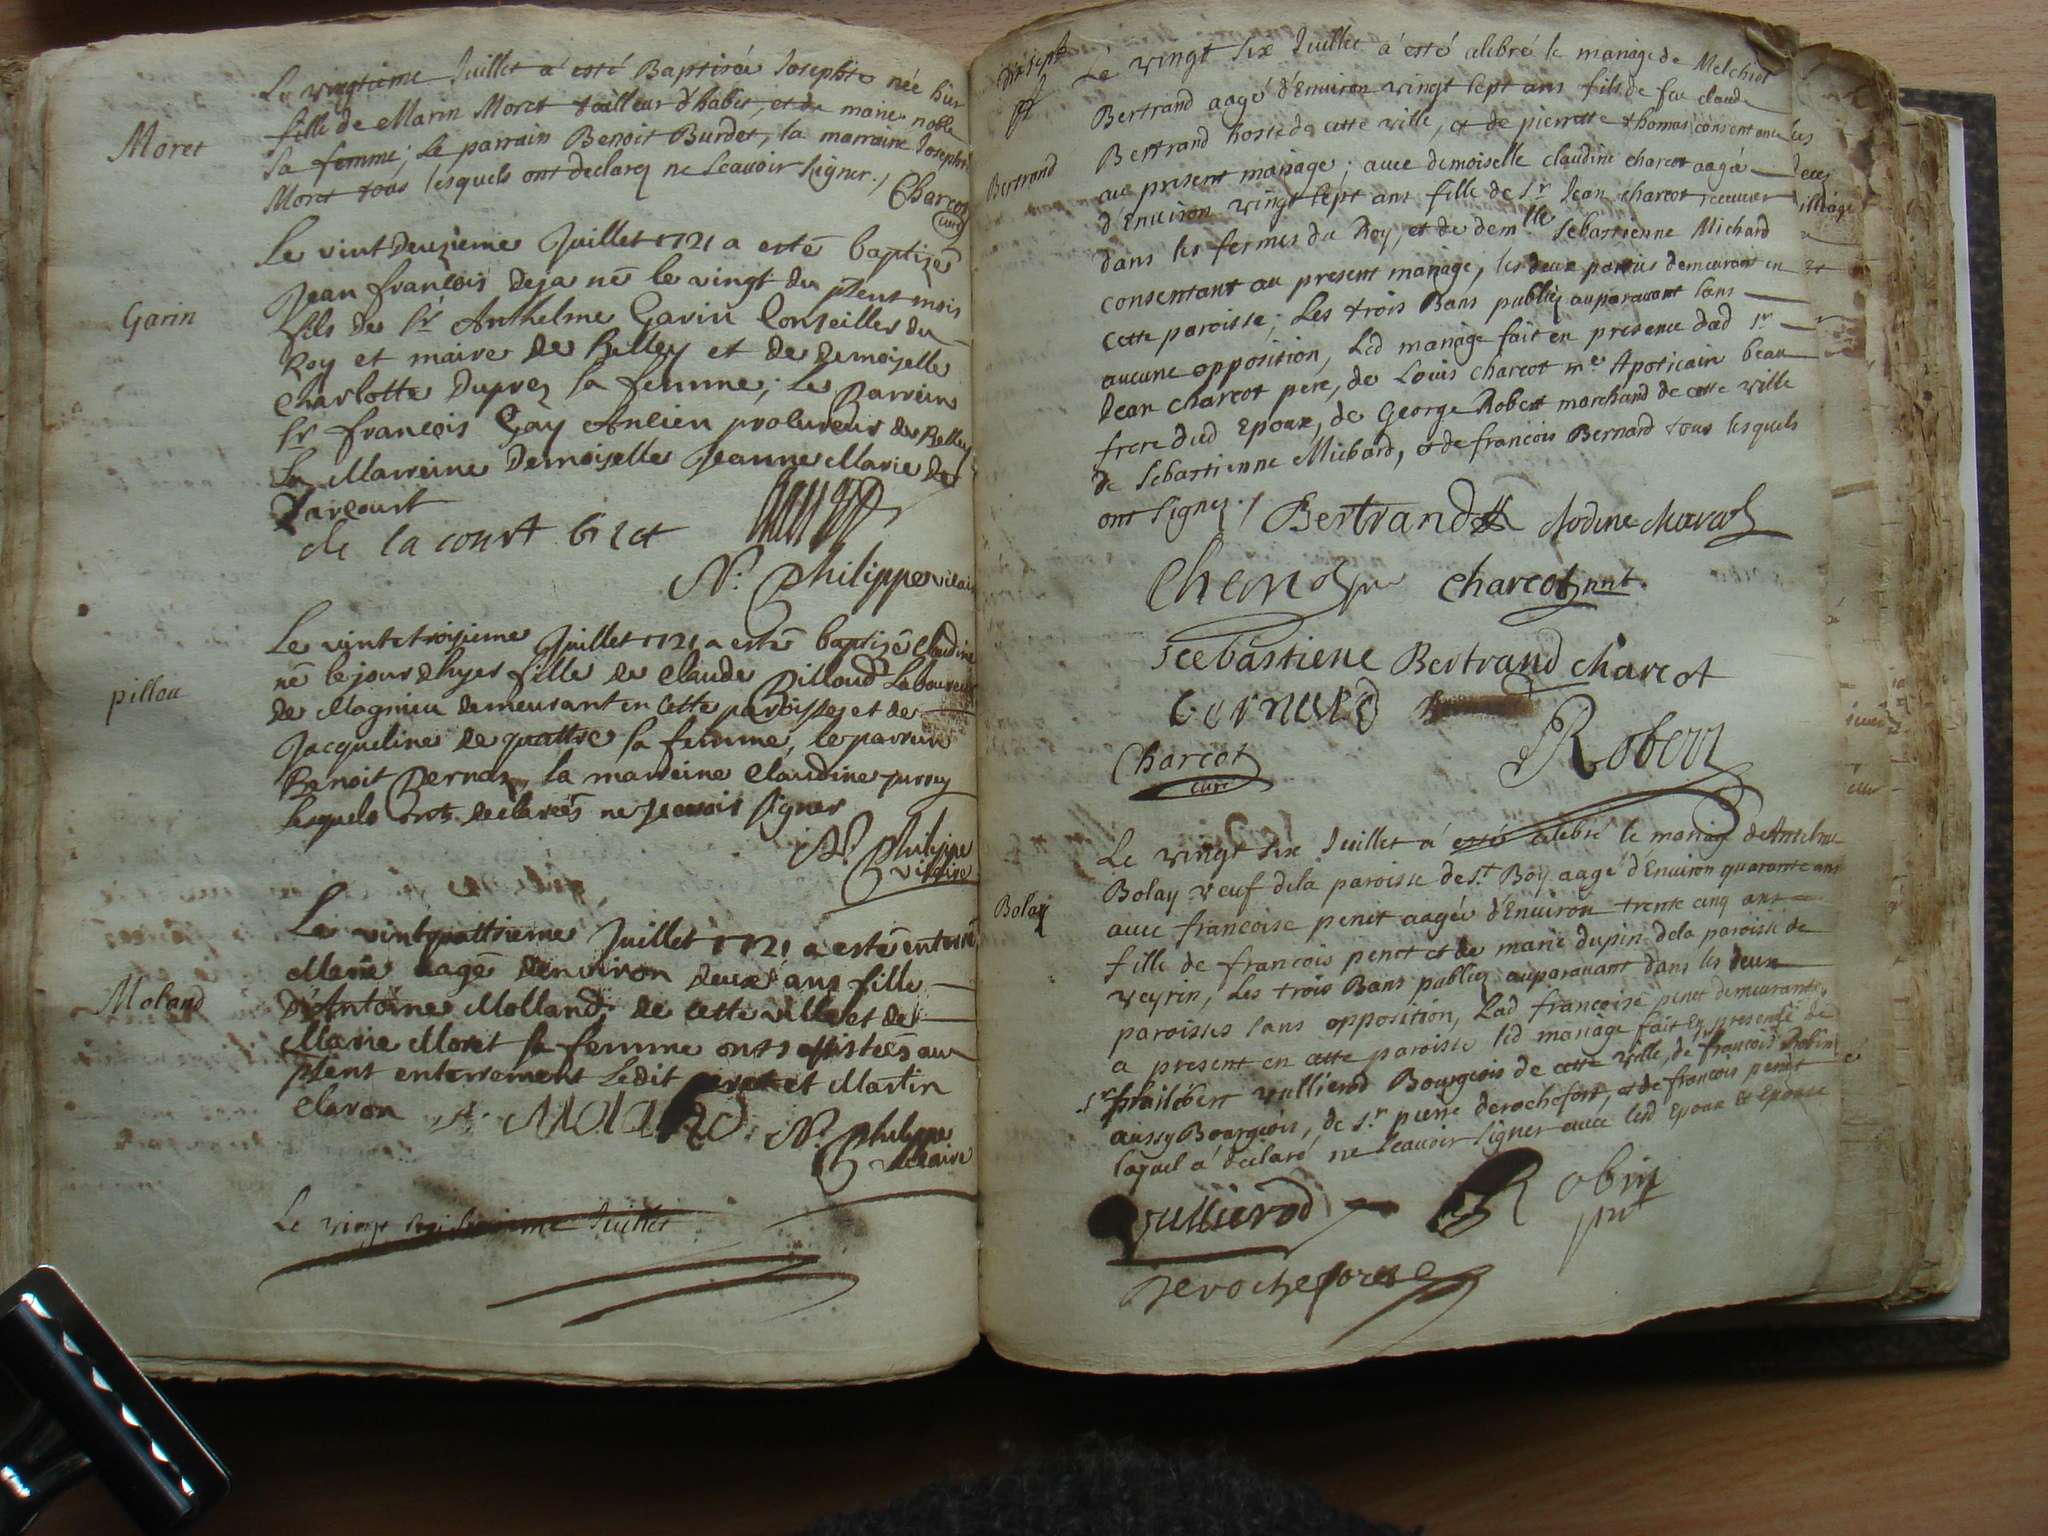 Moret
Le vingtieme Juillet a esté Baptisée Josephte née hier
fille de Marin Moret tailleur d'habit, et de marie noble
sa femme; Le parrain Benoit Burdet, la marraine Josephte
Moret tous lesquels ont declarez ne scauoir signer./
Charcot
curé
Garin
Le vint Deuzieme Juillet 1721 a esté baptizé
Jean françois Deja né le vingt du pñent mois
fils de Sr Anthelme Garin Conseiller du
Roy et maire de Belley et de Demoiselle
Charlotte Duprez sa femme; Le Parrein
Sr françois Gay Ancien procureur de Belley
La Marreine Demoiselle Jeanne Marie De
Larcourt
de la court
N. Philippe vicaire
pillou
Le vintetroisieme Juillet 1721 a esté baptizé Claudine
né le jour dhyer fille de Claude Pilloud Laboureur
de Magnieu demeurant en cette paroisse et de
Jacqueline de quattre sa femme, le parrein
Benoit Pernaz, la marreine Claudine
lesquels onts declarés ne scauoir signer
N. Philippe
vicaire
Moland
Le vintquattrieme Juillet 1721 a esté enterré
Marie aagé denviron deux ans fille
D'Antoine Molland de cette ville et de
Marie Moret sa femme onts assistées au
pñent enterrement Ledit et Martin
Claron
N. Philippe
vicaire
Le vingt Juillet
Bertrand
Le vingt six Juillet a esté celebré le mariage de Melchiot
Bertrand aagé d'Enuiron vingt sept ans fils de feu claude
Bertrand hoste de cette ville, et de pierrette thomas consentante
au present mariage; auec demoiselle claudine charcot aagée
d'Enuiron vingt sept ans fille de Sr Jean charcot receueur
dans les fermes du Roy, et de demlle Sebastienne Michard
consentant au present mariage, les deux parties demeurant en
cette paroisse; Les trois Bans publiez auparauant sans
aucune opposition, Led mariage fait en presence dud Sr
Jean charcot pere, de Louis charcot me Apoticair beau
frere dud Epoux, de George Robert marchand de cette ville
de Sebastienne Michard, et de francois Bernard tous lesquels
ont signez./ Bertrand
charcot
Scebastiene Bertrand charcot
Charcot
curé
Robert
Bolay
Le vingt six Juillet a esté celebré le mariage de Antelme
Bolay veuf dela paroisse de St Boy aagé d'Enuiron quarante ans
auec francoise penet aagée d'Enuiron trente cinq ans
fille de francois penet et de marie dupin dela paroisse de
veyrin, Les trois Bans publiez auparauant dans les deux
paroisses sans opposition, Lad francoise penet demeurante
a present en cette paroisse led mariage fait En presence de
Sr philibert vullierod Bourgeois de cette ville, de francois Robin
aussy Bourgeois, de Sr pierre derochefort, et de francois penet
lequel a declaré ne scauoir signer auec lesd Epoux et Epouse
vullierod
Robin
pnt
Derochefort